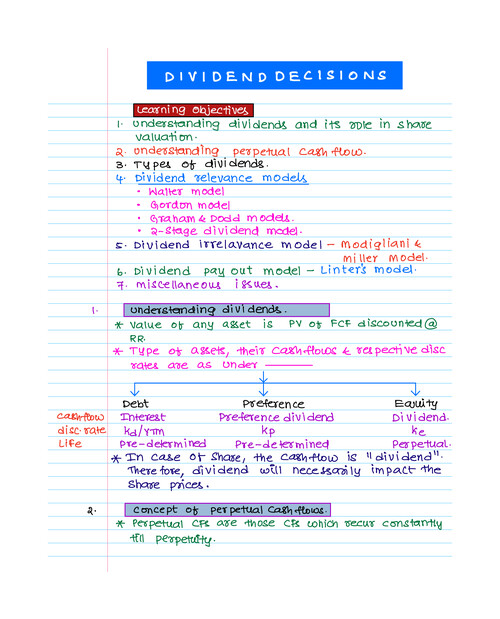 DIVIDEND DECISIONS
Learning Objectives
1. Understanding dividends and its role in share
valuation.
2. Understanding perpetual cashflow.
3. Types of dividends.
4. Dividend relevance models
• Walter model
• Gordon model
• Graham & Dodd models.
• 2-Stage dividend model.
5. Dividend irrelavance model – Modigliani &
miller model.
6. Dividend pay out model – Linter's model.
7. miscellaneous issues.
1. Understanding dividends.
* Value of any asset is PV of FCF discounted @
RR.
* Type of assets, their cashflows & respective disc
rates are as under
Debt Preference Equity
cashflow Interest Preference dividend Dividend.
disc.rate kd/YTM kp ke
Life Pre-determined Pre-determined Perpetual.
* In case of share, the cashflow is "dividend".
Therefore, dividend will necessarily impact the
share prices.
2. concept of perpetual cashflows.
* Perpetual CFs are those CFs which recur constantly
till perpetuity.